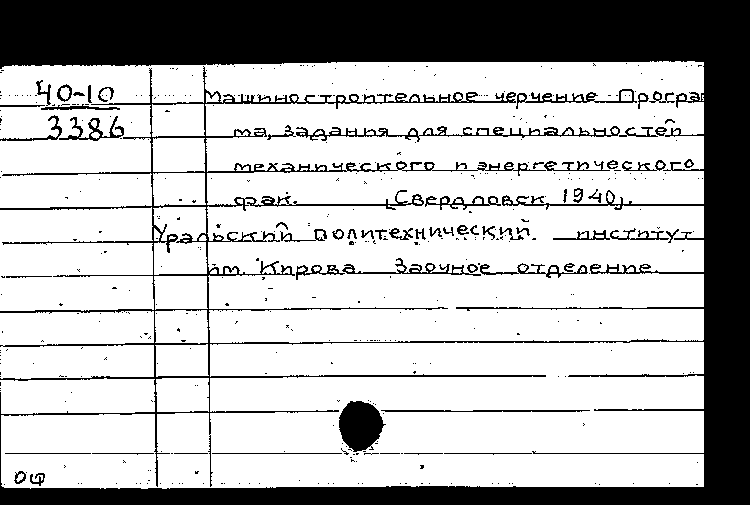 40-10
3386
Машиностроительное черчение Програм
ма, задания для специальностей
механического и энергетического
фак. [Свердловск, 1940].
Уральский политехнический институт
им. Кирова. Заочное отделение.
ОФ